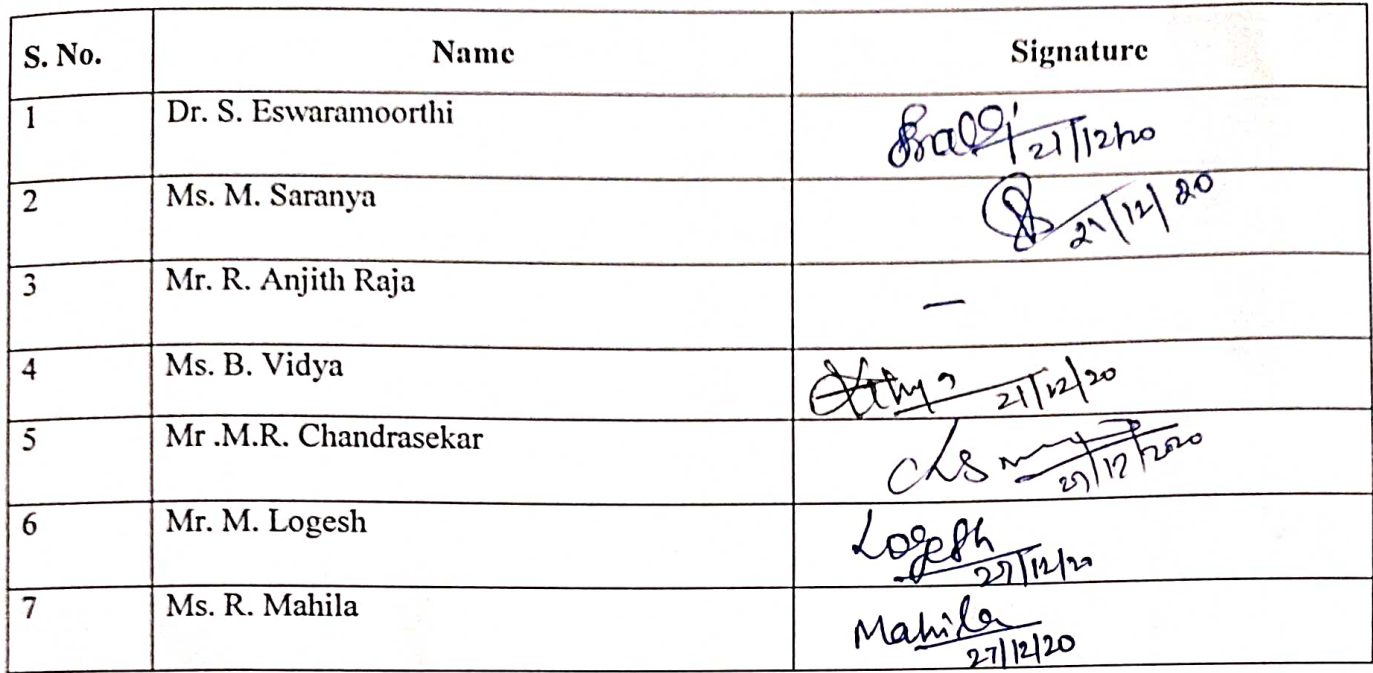 S. No. Name Signature
1 Dr. S. Eswaramoorthi 21/12/20
2 Ms. M. Saranya 21/12/20
3 Mr. R. Anjith Raja –
4 Ms. B. Vidya 21/12/20
5 Mr .M.R. Chandrasekar
6 Mr. M. Logesh Logesh 27/12/20
7 Ms. R. Mahila Mahila 27/12/20